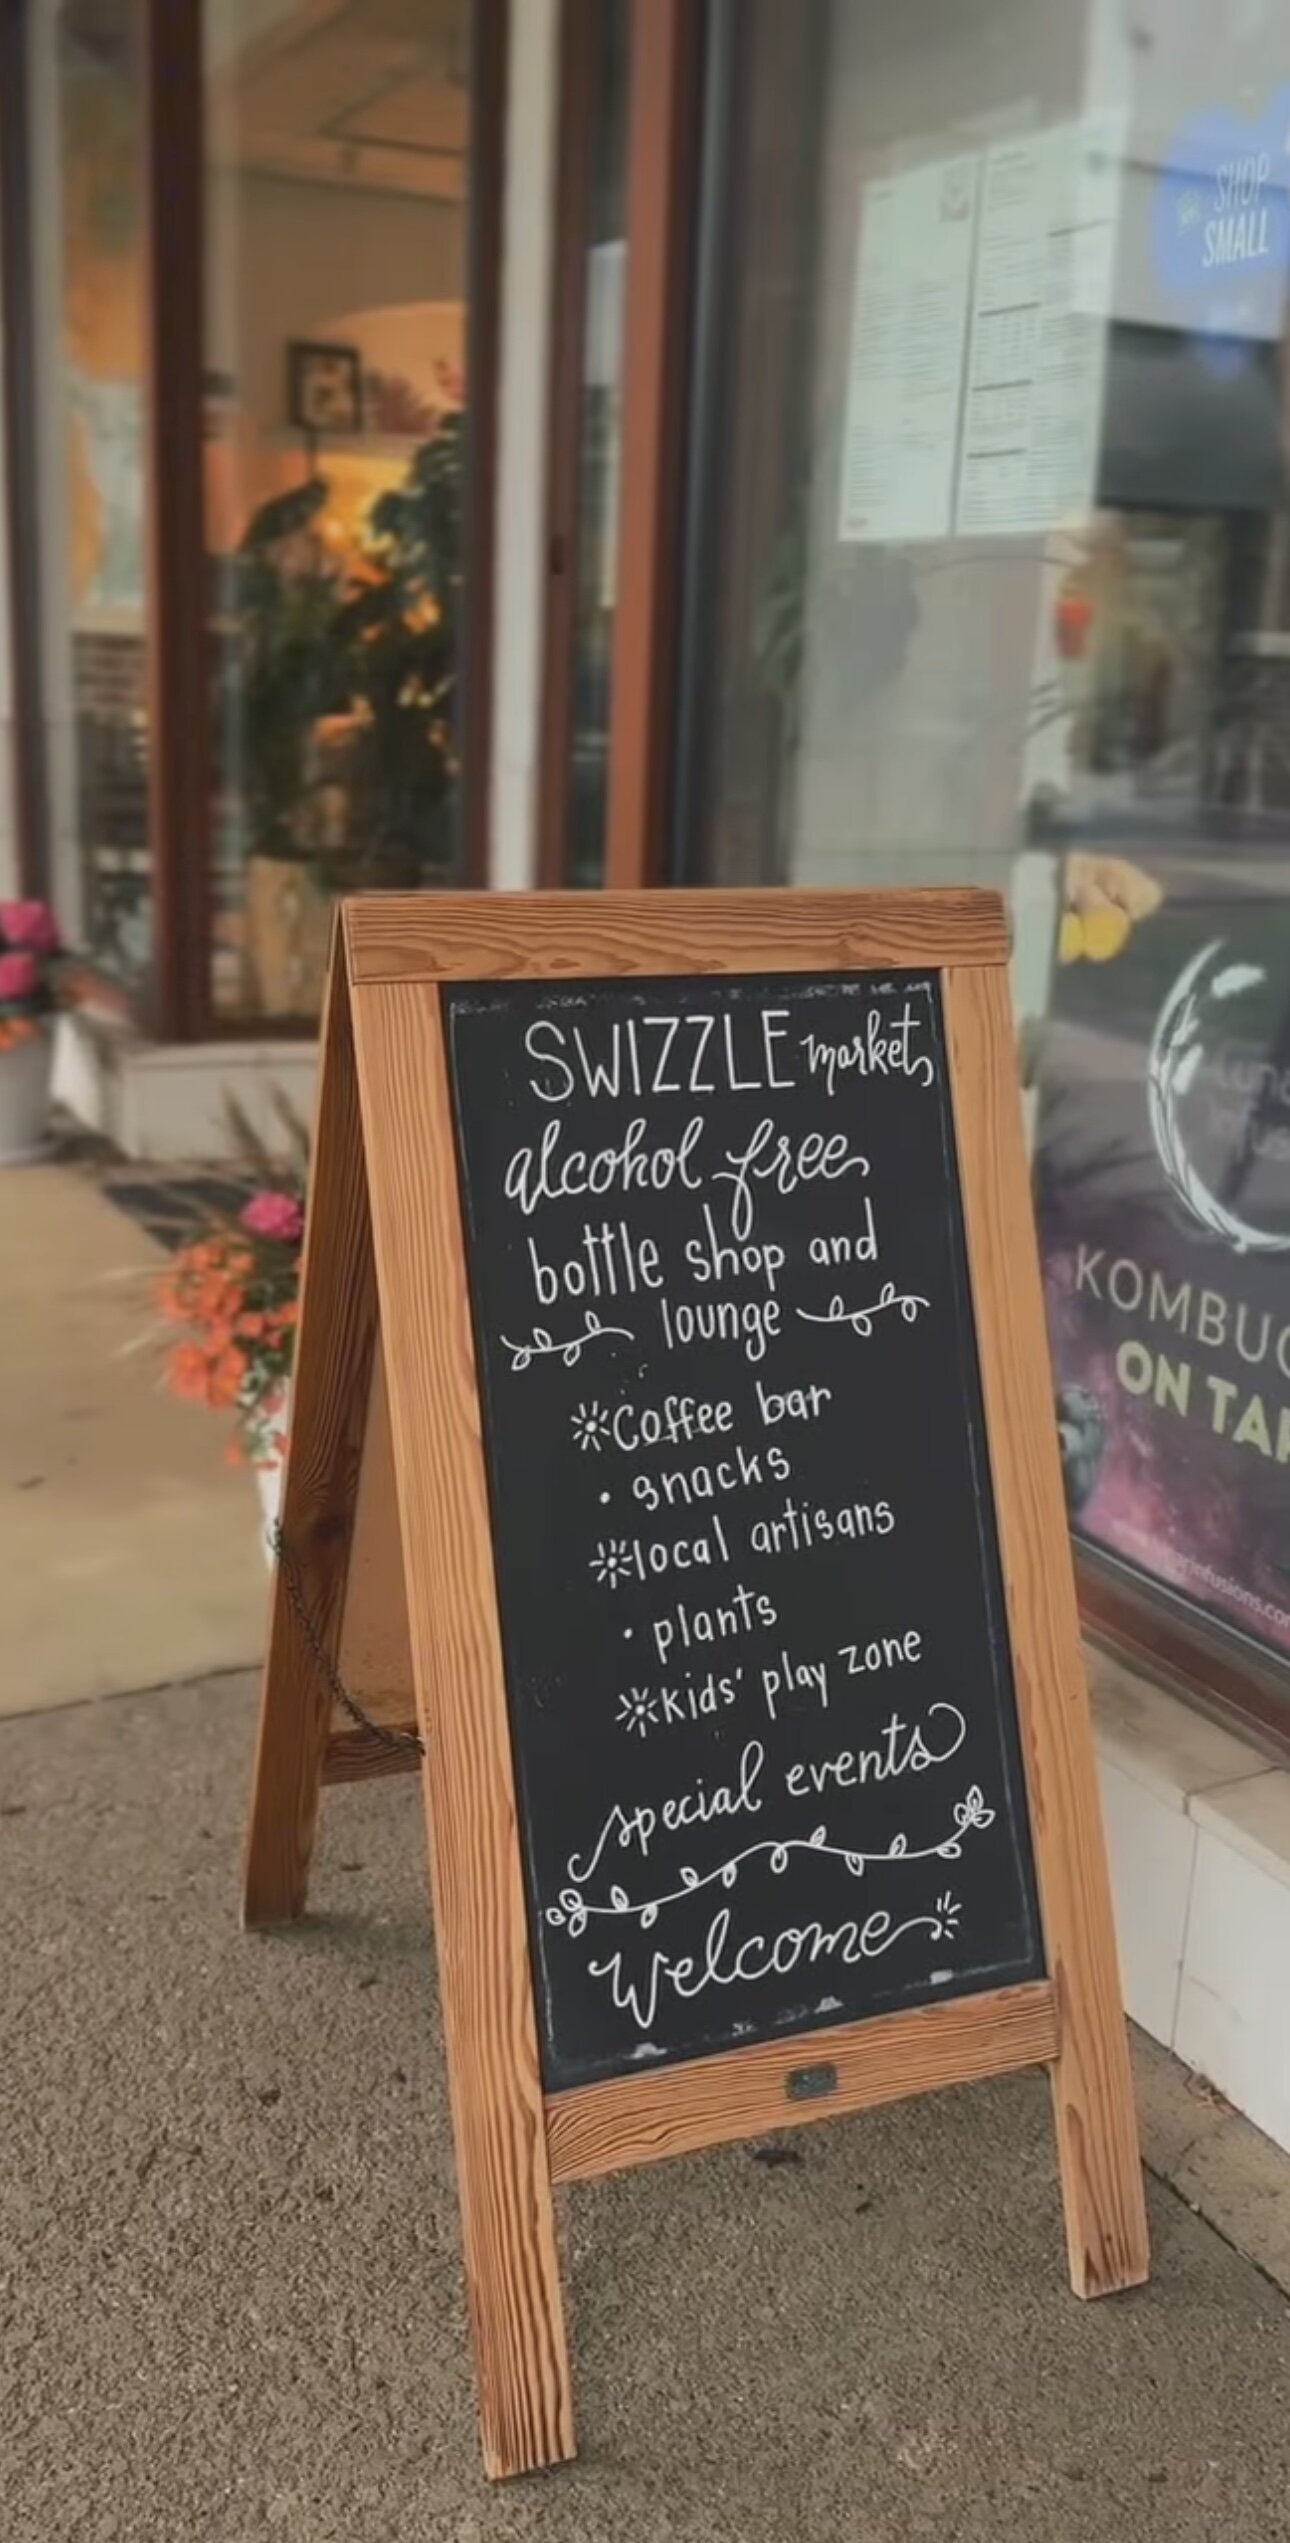 SHOP
SMALL
SWIZZLE market
alcohol free
bottle shop and
lounge
Coffee bar
• snacks
local artisans
• plants
kids' play zone
special events
Welcome
KOMBUC
ON TAP